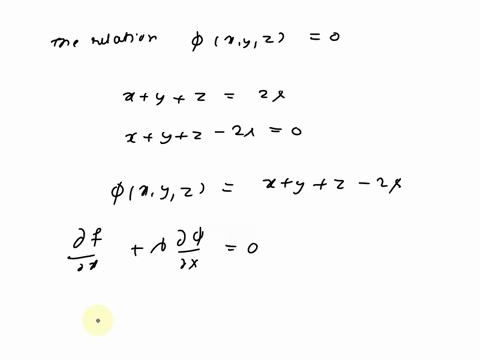 The relation ϕ(x,y,z) = 0
x+y+z = 2s
x+y+z - 2s = 0
ϕ(x,y,z) = x+y+z - 2s
∂f/∂x + λ ∂ϕ/∂x = 0